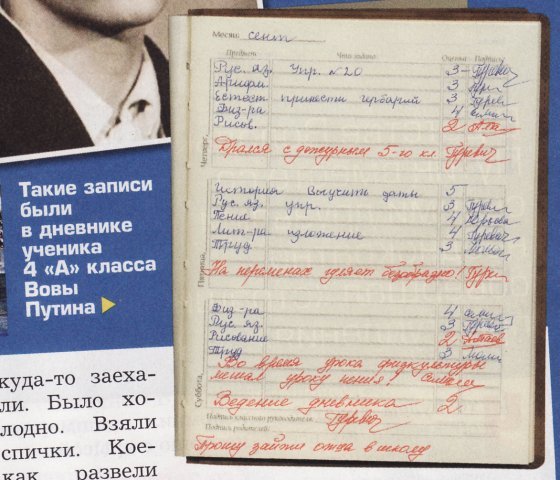 Такие записи
были
в дневнике
ученика
4 «А» класса
Вовы
Путина
куда-то заеха-
ли. Было хо-
лодно. Взяли
спички. Кое-
как развели
Месяц сент
Предмет Что задано Оценка Подпись
Четверг,
Рус. яз. Упр. №20 3-
Арифм. 3
Естест принести гербарий 3
Физ-ра 4
Рисов. 2
Дрался с дежурным 5-го кл. Гуревич
Пятница,
История Выучить даты 5
Рус. яз. упр. 3
Пение 4
Лит-ра изложение 4 Гуревич
Труд 3
На переменах гуляет безобразно!
Суббота,
Физ-ра 4
Рус. яз. 3
Рисование 2
Труд 3
Во время урока физкультуры
мешал уроку пения!
Ведение дневника 2
Подпись классного руководителя Гуревич
Подпись родителей
Прошу зайти отца в школу